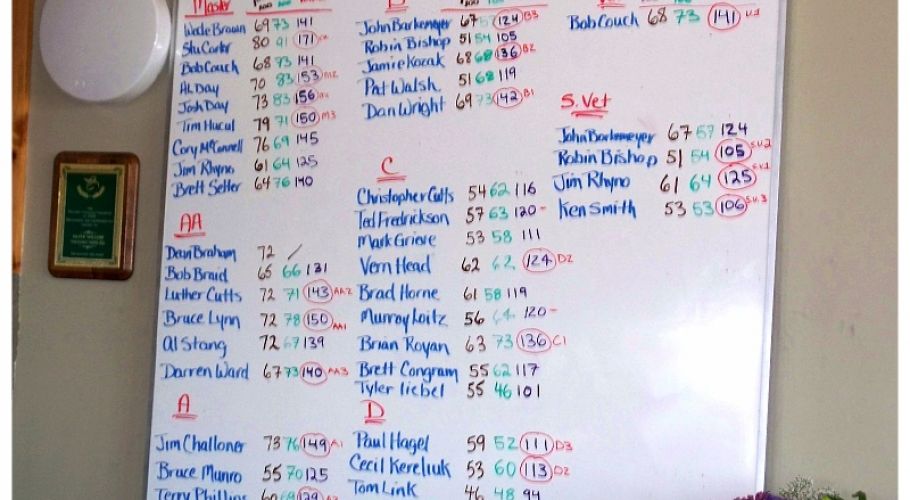 Master
Wade Brown 69 73 141
Stu Carter 80 91 171
Bob Couch 68 73 141
AL Day 70 83 153 M2
Josh Day 73 83 156
Tim Hucul 79 71 150 M3
Cory McConnell 76 69 145
Jim Rhyno 61 64 125
Brett Seller 64 76 140
AA
Dean Braham 72 /
Bob Braid 65 66 131
Luther Cutts 72 71 143 AA2
Bruce Lynn 72 78 150 AA1
Al Stang 72 67 139
Darren Ward 67 73 140 AA3
A
Jim Challoner 73 76 149 A1
Bruce Munro 55 70 125
Terry Phillips 60 69 129
B
John Barkemeyer 67 57 124 B3
Robin Bishop 51 54 105
Jamie Kozak 68 68 136 B2
Pat Walsh 51 68 119
Dan Wright 69 73 142 B1
C
Christopher Cutts 54 62 116
Ted Fredrickson 57 63 120 -
Mark Grieve 53 58 111
Vern Head 62 62 124 D2
Brad Horne 61 58 119
Murray Loitz 56 64 120 -
Brian Royan 63 73 136 C1
Brett Congram 55 62 117
Tyler Liebel 55 46 101
D
Paul Hagel 59 52 111 D3
Cecil Kereliuk 53 60 113 D2
Tom Link 46 48 94
Bob Couch 68 73 141 V.1
S. Vet
John Barkemeyer 67 57 124
Robin Bishop 51 54 105 S.V.2
Jim Rhyno 61 64 125 S.V.1
Ken Smith 53 53 106 S.V.3